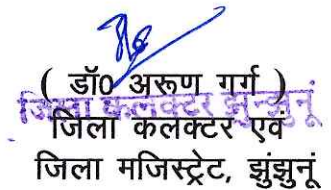 ( डॉ0 अरूण गर्ग )
जिला कलक्टर झुन्झुनूं
जिला कलक्टर एवं
जिला मजिस्ट्रेट, झुंझुनूं